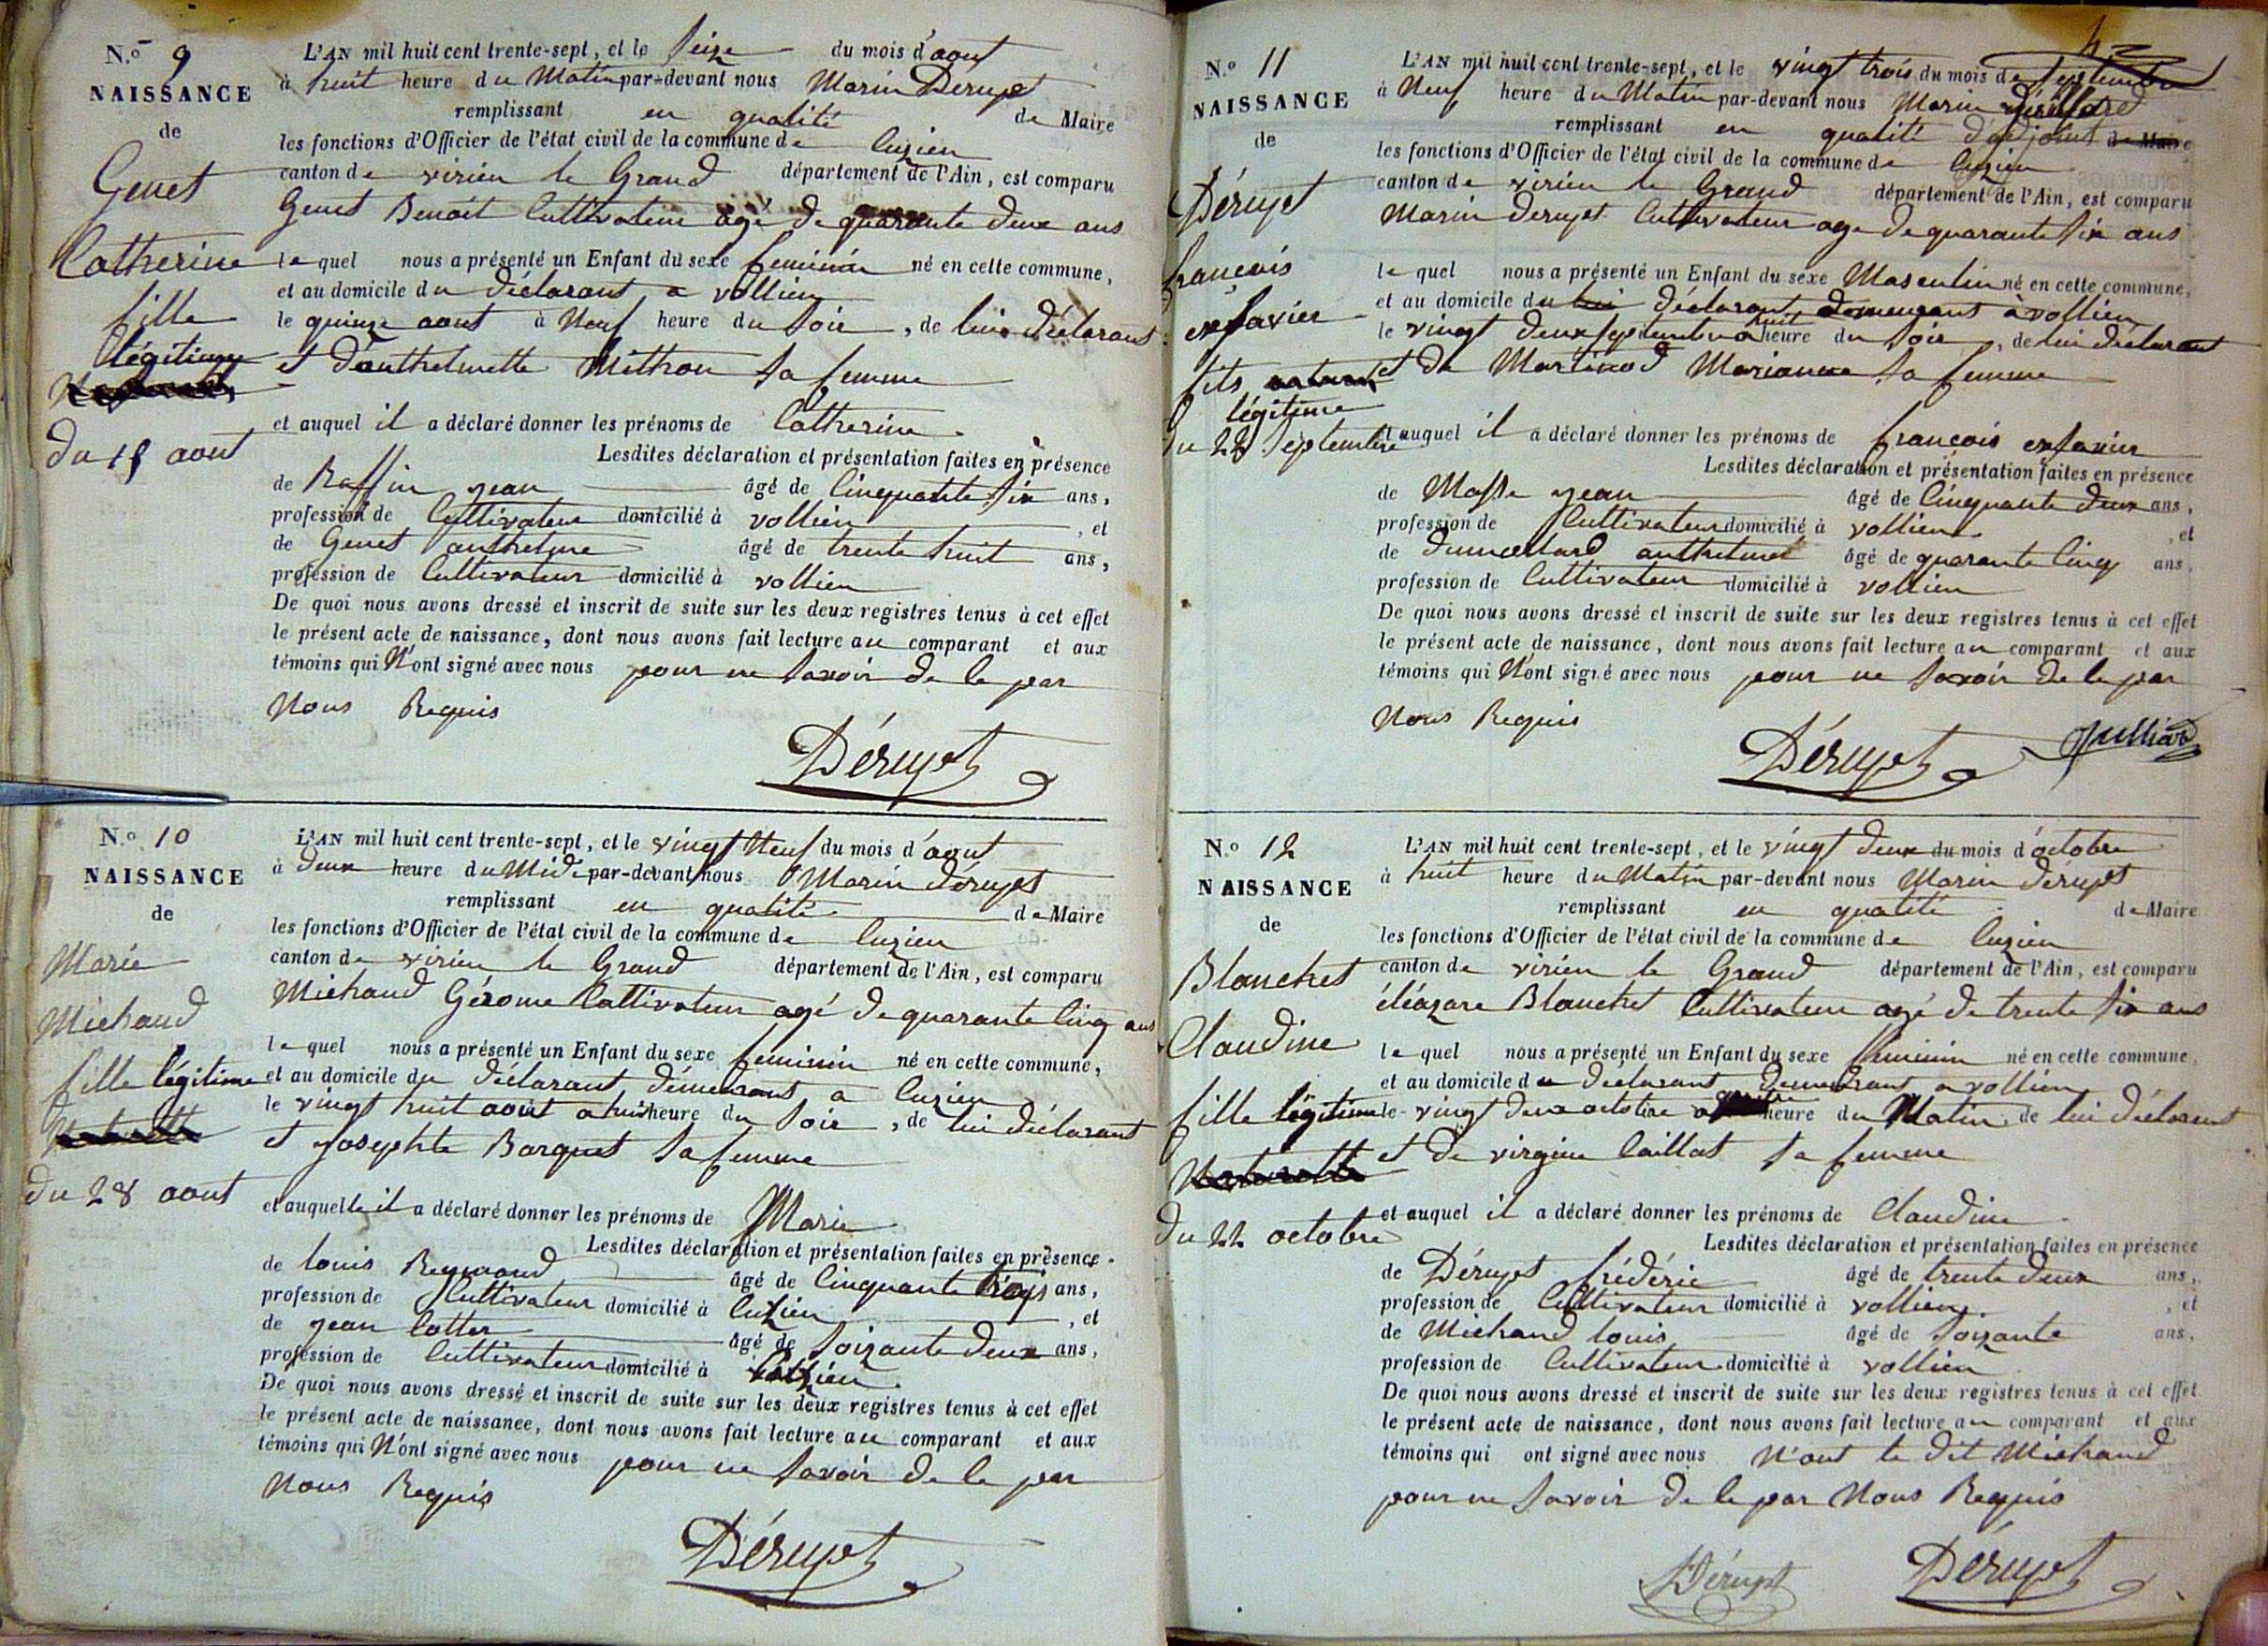 N.o 9
NAISSANCE
de
Genet
Catherine
fille
légitime
du 15 aout
L'AN mil huit cent trente-sept, et le seize du mois d'aout
à huit heure du Matin par-devant nous Marin Dérupet
remplissant en qualité de Maire
les fonctions d'Officier de l'état civil de la commune de Cuzieu
canton de virieu le Grand département de l'Ain, est comparu
Genet Benoit Cultivateur agé de quarante deux ans
le quel nous a présenté un Enfant du sexe feminin né en cette commune,
et au domicile du déclarant a vollien
le quinze aout à Neuf heure du soir, de lui déclarant
et d'anthelmette Mithon sa femme
et auquel il a déclaré donner les prénoms de Catherine
Lesdites déclaration et présentation faites en présence
de Raffin jean âgé de Cinquante six ans,
profession de Cultivateur domicilié à vollien, et
de Genet anthelme âgé de trente huit ans,
profession de Cultivateur domicilié à vollien
De quoi nous avons dressé et inscrit de suite sur les deux registres tenus à cet effet
le présent acte de naissance, dont nous avons fait lecture au comparant et aux
témoins qui N'ont signé avec nous pour ne savoir de le par
Nous Requis
Dérupet
N.o 10
NAISSANCE
de
Marie
Michaud
fille légitime
du 28 aout
L'AN mil huit cent trente-sept, et le vingt Neuf du mois d'aout
à deux heure du Midi par-devant nous Marin dérupet
remplissant en qualité de Maire
les fonctions d'Officier de l'état civil de la commune de Cuzieu
canton de virieu le Grand département de l'Ain, est comparu
Michaud Gérome Cultivateur agé de quarante cinq ans
le quel nous a présenté un Enfant du sexe feminin né en cette commune,
et au domicile du déclarant démeurant a Cuzieu
le vingt huit aout a huit heure du soir, de lui déclarant
et josephte Barquet sa femme
et auquelle il a déclaré donner les prénoms de Marie
Lesdites déclaration et présentation faites en présence
de louis Reymond âgé de Cinquante trois ans,
profession de Cultivateur domicilié à Cuzieu, et
de jean Cotter âgé de soixante deux ans,
profession de Cultivateur domicilié à Cuzieu
De quoi nous avons dressé et inscrit de suite sur les deux registres tenus à cet effet
le présent acte de naissance, dont nous avons fait lecture au comparant et aux
témoins qui N'ont signé avec nous pour ne savoir de le par
Nous Requis
Dérupet
N.o 11
NAISSANCE
de
Dérupet
françois
exfavier
fils
légitime
du 22 Septembre
L'AN mil huit cent trente-sept, et le vingt trois du mois de septembre
à Neuf heure du Matin par-devant nous Marin
remplissant en qualité d'adjoint de Maire
les fonctions d'Officier de l'état civil de la commune de Cuzieu
canton de virieu le Grand département de l'Ain, est comparu
Marin derupet Cultivateur age de quarante six ans
le quel nous a présenté un Enfant du sexe Masculin né en cette commune,
et au domicile du déclarant demeurant à vollien
le vingt deux septembre a huit heure du soir, de lui déclarant
et de Martinod Marianne sa femme
et auquel il a déclaré donner les prénoms de françois exfavier
Lesdites déclaration et présentation faites en présence
de Masse jean âgé de Cinquante deux ans,
profession de Cultivateur domicilié à vollien, et
de dumollard anthelme âgé de quarante cinq ans,
profession de Cultivateur domicilié à vollien
De quoi nous avons dressé et inscrit de suite sur les deux registres tenus à cet effet
le présent acte de naissance, dont nous avons fait lecture au comparant et aux
témoins qui N'ont signé avec nous pour ne savoir de le par
Nous Requis
Dérupet Jullia
N.o 12
NAISSANCE
de
Blanchet
Claudine
fille légitime
du 22 octobre
L'AN mil huit cent trente-sept, et le vingt deux du mois d'octobre
à huit heure du Matin par-devant nous Marin dérupet
remplissant en qualité de Maire
les fonctions d'Officier de l'état civil de la commune de Cuzieu
canton de virieu le Grand département de l'Ain, est comparu
éléazare Blanchet Cultivateur agé de trente six ans
le quel nous a présenté un Enfant du sexe féminin né en cette commune,
et au domicile du déclarant demeurant a vollien
le vingt deux octobre a heure du Matin de lui déclarant
et de virginie Caillat sa femme
et auquel il a déclaré donner les prénoms de Claudine
Lesdites déclaration et présentation faites en présence
de Dérupet frédéric âgé de trente deux ans,
profession de Cultivateur domicilié à vollien, et
de Michaud louis âgé de soixante ans,
profession de Cultivateur domicilié à vollien
De quoi nous avons dressé et inscrit de suite sur les deux registres tenus à cet effet
le présent acte de naissance, dont nous avons fait lecture au comparant et aux
témoins qui ont signé avec nous N'ont le dit Michaud
pour ne savoir de le par Nous Requis
Dérupet Dérupet